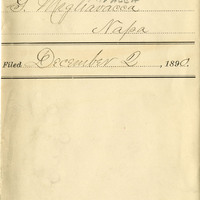 G. Migliavacca
Napa
Filed December 2, 1890.